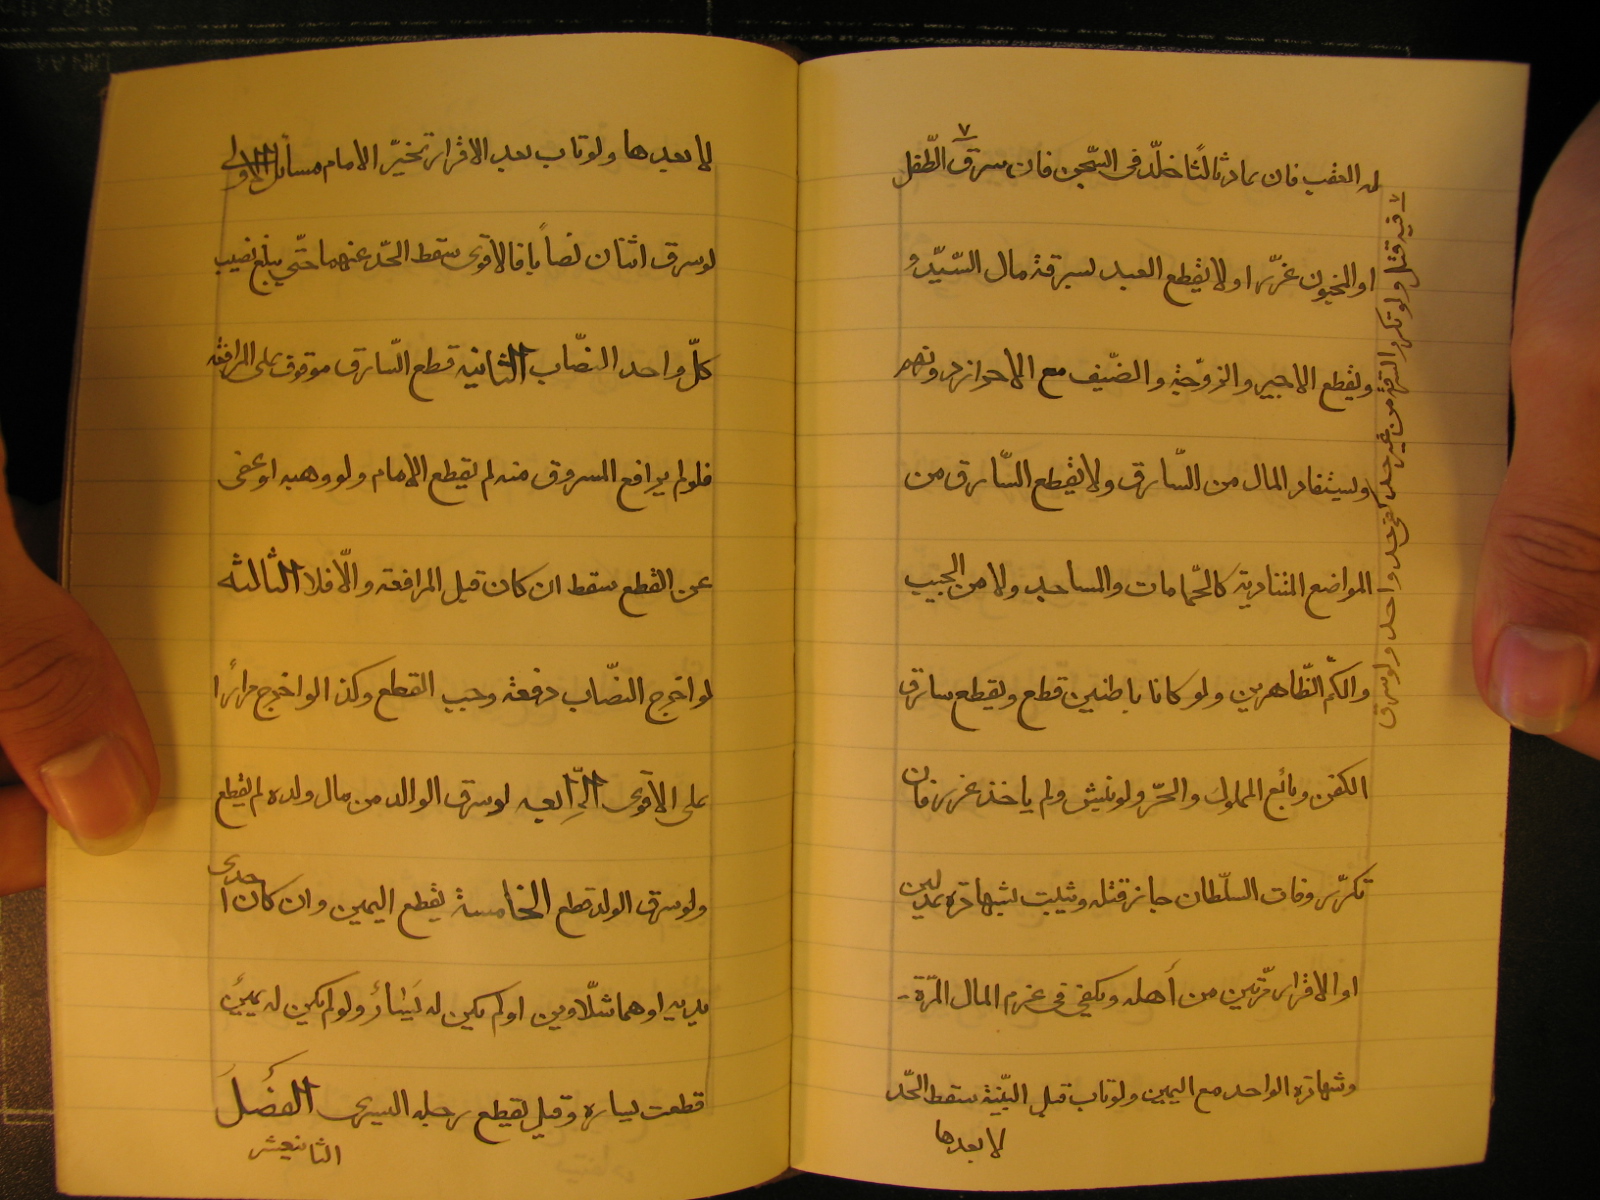 له العقب فان عاد ثالثًا خلّد فى السّجن فان سرق الطّفل
٧
او المجنون عزّرا ولا يقطع العبد لسرقة مال السّيّد و
ويقطع الاجير والزوّجة والضّيف مع الاحراز دونهم
ويستفاد المال من السّارق ولا يقطع السّارق من
المواضع المنتادية كالحمّامات والمساجد ولا من الجيب
والكمّ الظّاهرين ولو كانا باطنين قطع ويقطع سارق
الكفن وبائع المملوك والحرّ ولو نبش ولم ياخذ عزر فان
تكرّر وفات السلّطان جاز قتله ويثبت بشهادة عدلين
او الاقرار مرّتين من أهله ويكفى فى غرم المال المرّة
وشهادة الواحد مع اليمين ولو تاب قبل البيّنة سقط الحّد
لا بعدها
٧ فيه قتل ولو تكرر السرقة من غير حد كفى حد واحد ولو سرق
لا بعدها ولو تاب بعد الاقرار تخيّر الامام مسائل الاولى
لو سرق اثنان نصاباً فالاقوى سقط الحّد عنهما حتّى يبلغ نصيب
كلّ واحد النصّاب الثانية قطع السّارق موقوف على المرافعة
فلو لم يرافع المسروق منه لم يقطع الامام ولو وهبه او عفى
عن القطع سقط ان كان قبل المرافعة والّا فلا الثالثه
لو اخرج النصّاب دفعة وجب القطع وكذا لو اخرج مرارًا
على الاقوى الرّابعه لو سرق الوالد من مال ولده لم يقطع
ولو سرق الولد قطع الخامسة يقطع اليمين وان كان احدى
يديه او هما شلّاوين او لم يكن له يَسارٌ ولو لم يكن له يمينٌ
قطعت يساره وقيل يقطع رجله اليسرى الفَصلُ
الثانيعشر